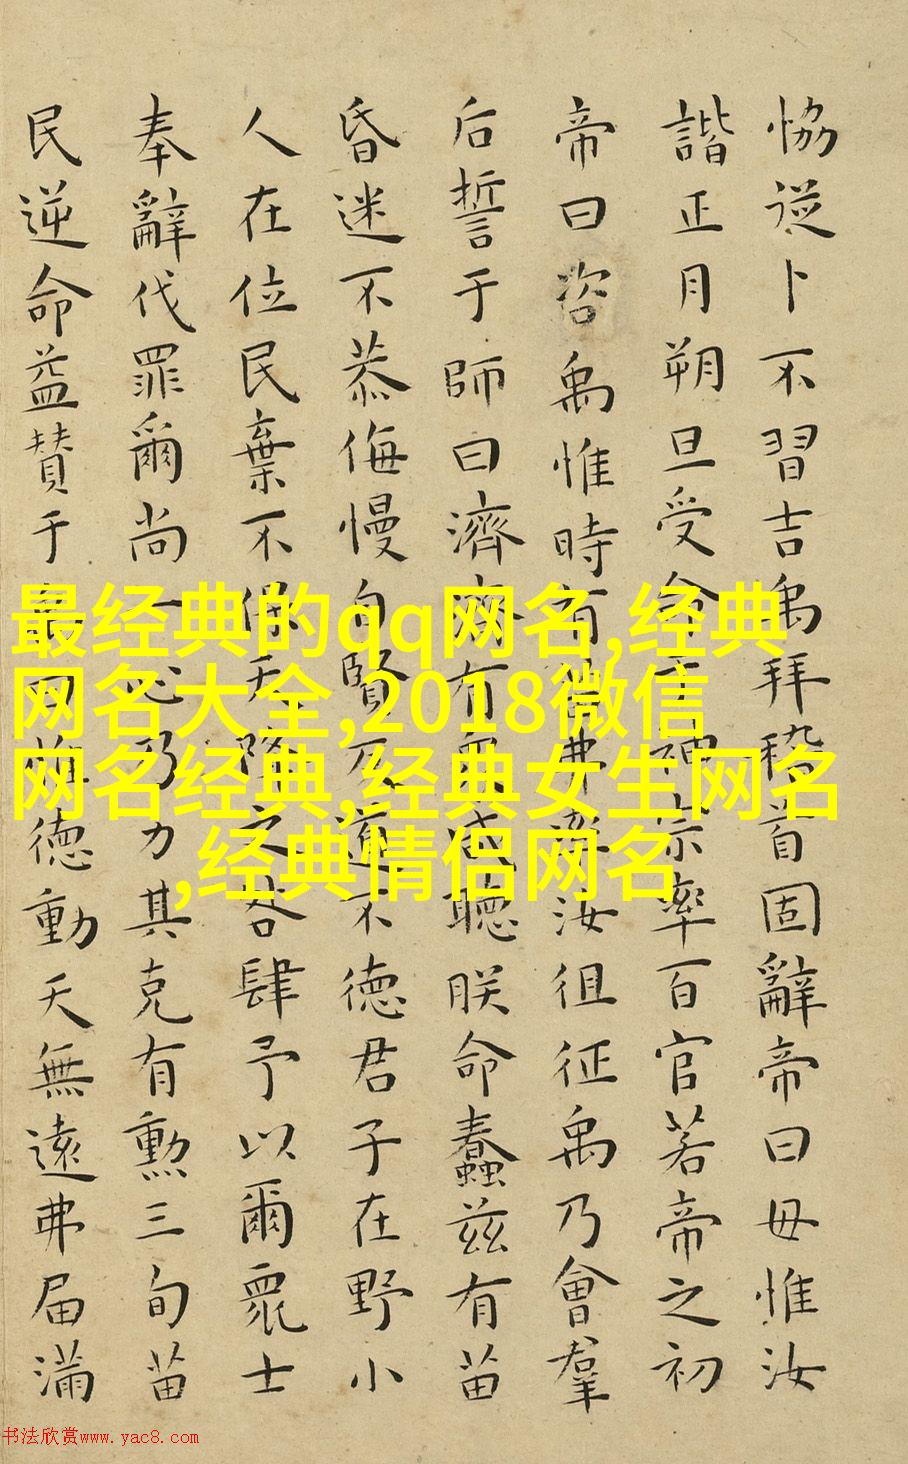 恊從卜不習吉禹拜稽首固辭帝曰毋惟汝
諧正月朔旦受命于神宗率百官若帝之初
帝曰咨禹惟時有苗弗率汝徂征禹乃會羣
后誓于師曰濟濟有衆咸聽朕命蠢兹有苗
昏迷不恭侮慢自賢反道不德君子在野小
人在位民棄不保天降之咎肆予以爾衆士
奉辭伐罪爾尚一心乃力其克有勲三旬苗
民逆命益贊于禹曰惟德動天無遠弗届滿
最经典的qq网名,经典
网名大全,2018微信
网名经典,经典女生网名
,经典情侣网名
书法欣赏www.yac8.com